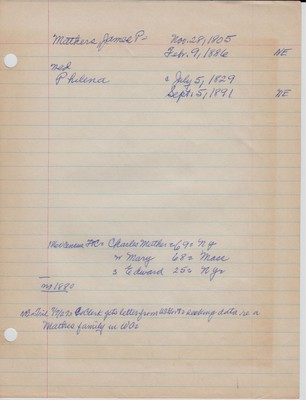 Matthers, James P- Nov. 28, 1805
Feb. 9, 1886 NE
med
Philena 2 July 5, 1829
Sept. 5, 1891 NE
Census FC= Charles Mather = 69= N Y
w Mary 68= Mass
s Edward 25= N Y=
1880
gets letter from seeking data re a
Mather family in